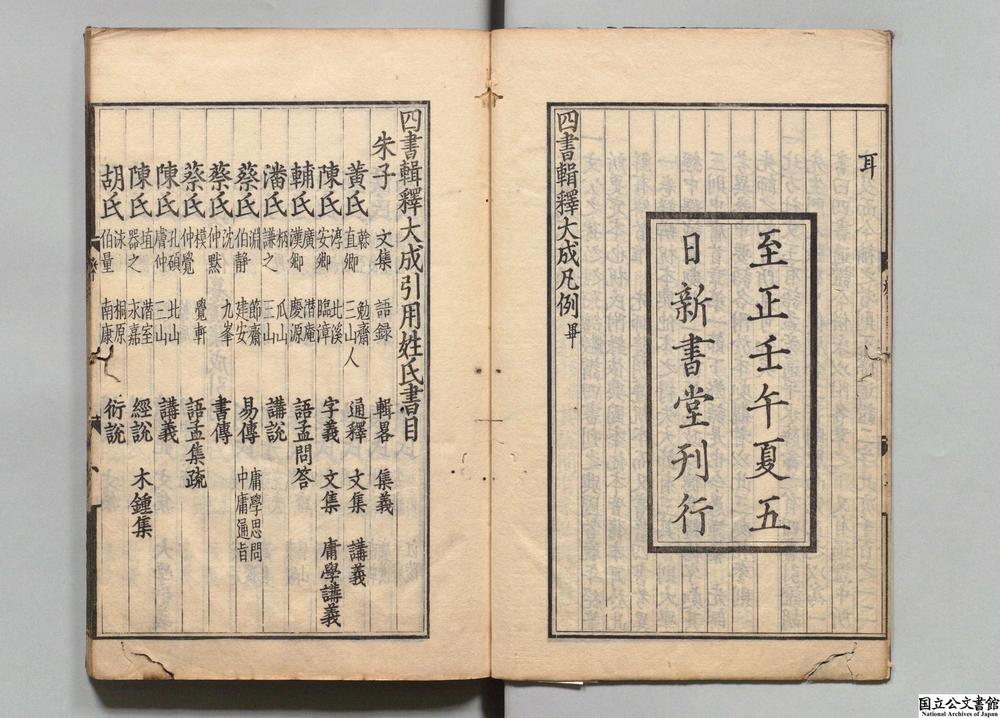 耳
至正壬午夏五
日新書堂刊行
四書輯釋大成凡例 畢
四書輯釋大成引用姓氏書目
朱子 文集 語録 輯畧 集義
黃氏 榦直卿 勉齋三山人 通釋 文集 講義
陳氏 淳安卿 北溪臨漳 字義 文集 庸學講義
輔氏 廣漢卿 潜庵慶源 語孟問答
潘氏 柄謙之 瓜山三山 講說
蔡氏 淵伯静 節齋建安 易傳 庸學思問中庸通旨
蔡氏 沈仲默 九峯 書傳
蔡氏 模仲覺 覺軒 語孟集疏
陳氏 孔碩膚仲 北山三山 講義
陳氏 埴器之 潜室永嘉 經說 木鍾集
胡氏 泳伯量 桐原南康 衍說
国立公文書館
National Archives of Japan